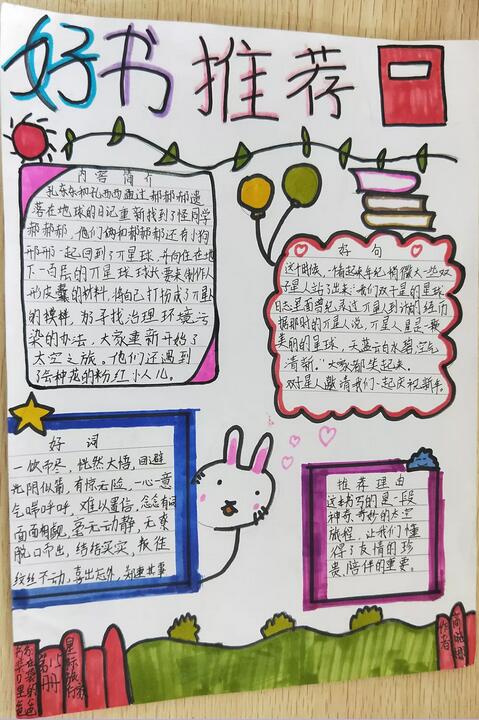 好书推荐
内容简介
孔东东和孔西西通过郝郝郝遗
落在地球的日记重新找到了怪同学
郝郝郝，他们俩和郝郝郝还有小狗
邢邢一起回到了π星，并向住在地
下一百层的π星球球长要来制作人
形皮囊的材料，将自己打扮成了π星人
的模样，为寻找治理环境污
染的办法，大家重新开始了
太空之旅。他们还遇到
了会种花的粉红小人儿。
好句
这时候，一情起来年纪稍微大一些双
子星人站了出来："我们双子星的星球
日志里面曾纪录过π星人到访的经历
据那时的π星人说，π星人星是一颗
美丽的星球，天蓝云白水碧，空气
清新。"大家都笑起来。
双子星人邀请我们一起庆祝新年。
好词
一饮而尽，恍然大悟，回避
光阴似箭，有惊无险，一心一意
气呼呼，难以置信，念念有词
面面相觑，毫无动静，无奈
脱口而出，结结实实，
纹丝不动，喜出望外，郑重其事
推荐理由
这本书写的是一段
神奇、奇妙的太空
旅程，让我们懂
得了友情的珍
贵、陪伴的重要。
第15册
星际旅行
作者